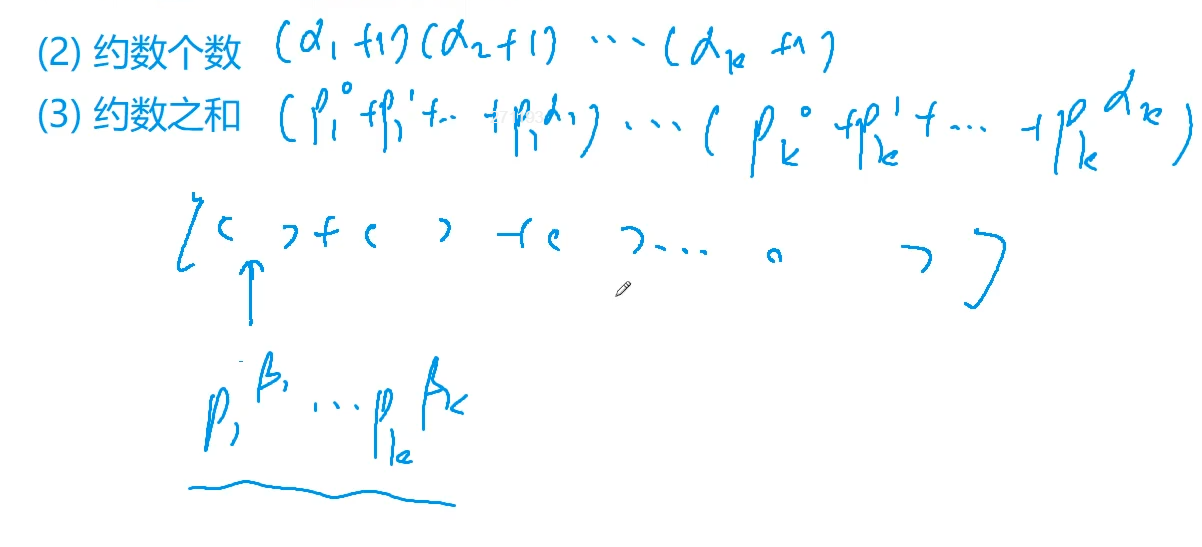 (2) 约数个数 (α₁+1)(α₂+1)⋯(αₖ+1)
(3) 约数之和 (p₁⁰+p₁¹+⋯+p₁^α₁)⋯(pₖ⁰+pₖ¹+⋯+pₖ^αₖ)
[( )+( )+( )⋯( )]
p₁^β₁⋯pₖ^βₖ